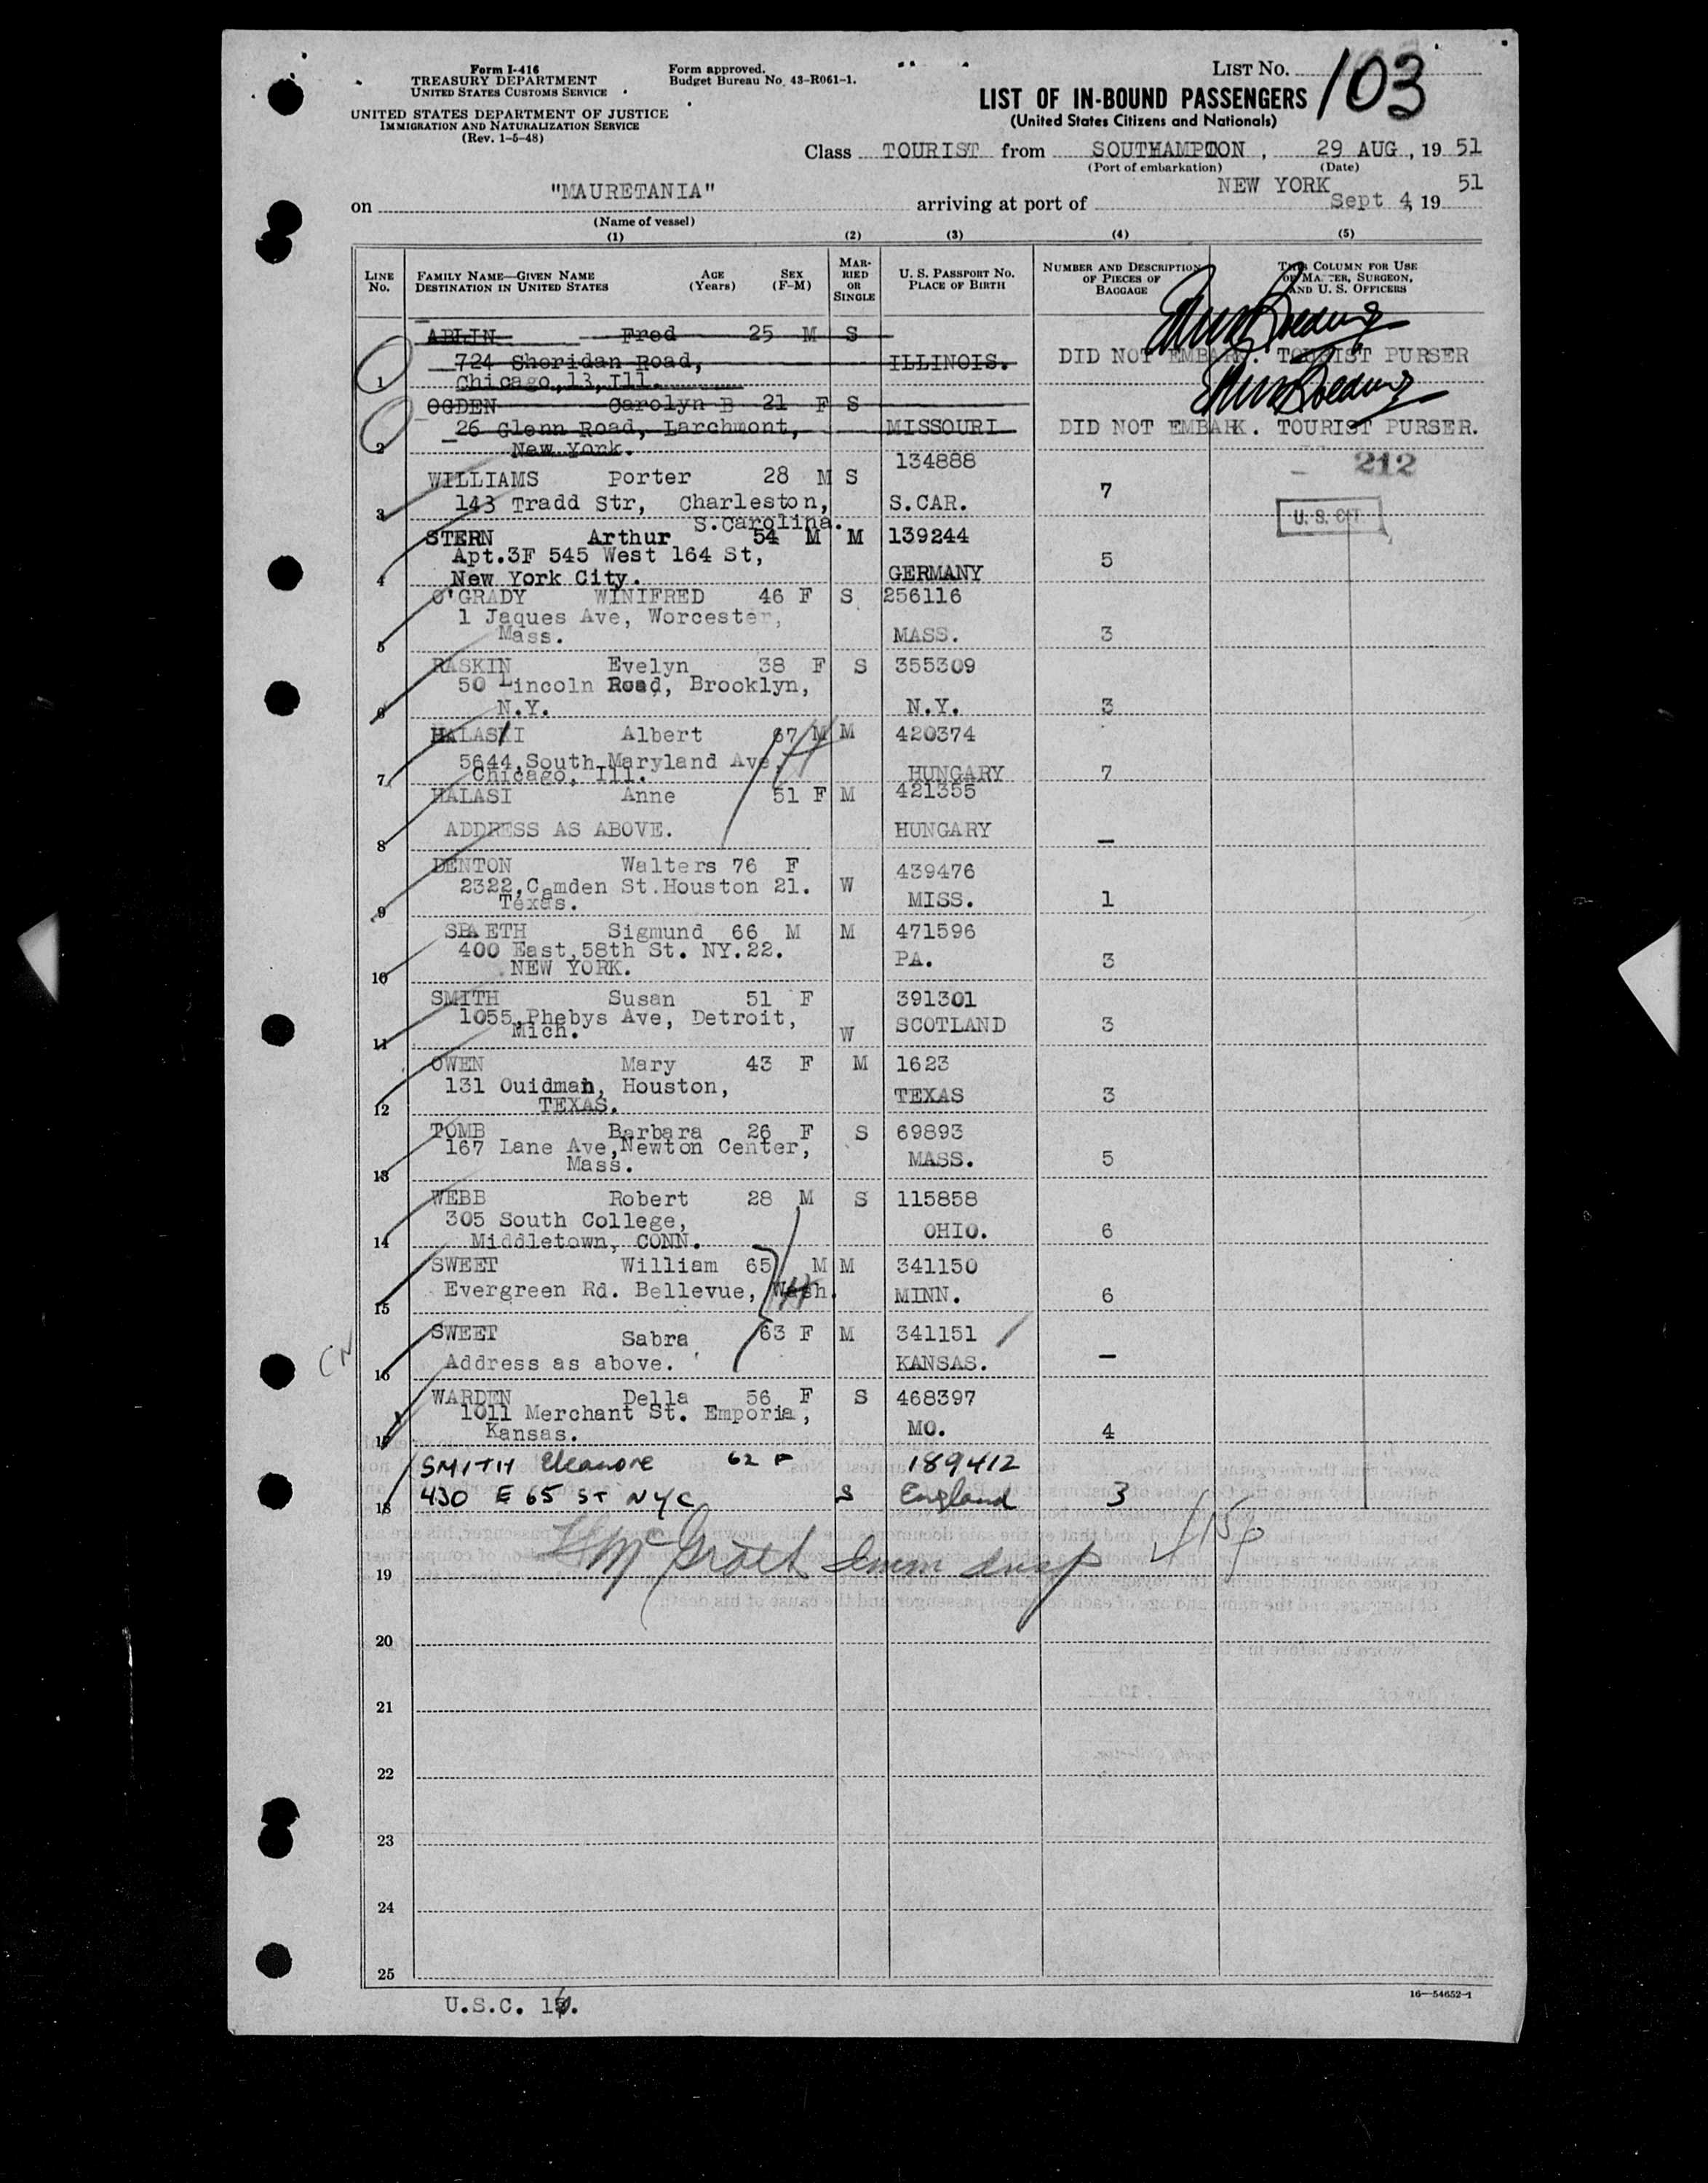 Form I-416
TREASURY DEPARTMENT
UNITED STATES CUSTOMS SERVICE
UNITED STATES DEPARTMENT OF JUSTICE
IMMIGRATION AND NATURALIZATION SERVICE
(Rev. 1-5-48)
Form approved.
Budget Bureau No. 43-R061-1.
LIST No. 103
LIST OF IN-BOUND PASSENGERS
(United States Citizens and Nationals)
Class TOURIST from SOUTHAMPTON, 29 AUG, 19 51
(Port of embarkation) (Date)
on "MAURETANIA" arriving at port of NEW YORK Sept 4, 19 51
(Name of vessel)
(1) (2) (3) (4) (5)
LINE No. FAMILY NAME—GIVEN NAME DESTINATION IN UNITED STATES AGE (Years) SEX (F-M) MARRIED OR SINGLE U. S. PASSPORT No. PLACE OF BIRTH NUMBER AND DESCRIPTION OF PIECES OF BAGGAGE THIS COLUMN FOR USE OF MASTER, SURGEON, AND U. S. OFFICERS
ABLIN Fred 25 M S
724 Sheridan Road, ILLINOIS. DID NOT EMBARK. TOURIST PURSER
1 Chicago,13,Ill.
OGDEN Carolyn B 21 F S
26 Glenn Road, Larchmont, MISSOURI DID NOT EMBARK. TOURIST PURSER.
2 New York.
WILLIAMS Porter 28 M S 134888 212
3 143 Tradd Str, Charleston, S.CAR. 7 U. S. CIT
S.Carolina.
STERN Arthur 54 M M 139244
Apt.3F 545 West 164 St, 5
4 New York City. GERMANY
O'GRADY WINIFRED 46 F S 256116
1 Jaques Ave, Worcester,
5 Mass. MASS. 3
RASKIN Evelyn 38 F S 355309
50 Lincoln Road, Brooklyn,
6 N.Y. N.Y. 3
HALASI Albert 67 M M 420374
5644,South Maryland Ave,
7 Chicago, Ill. HUNGARY 7
HALASI Anne 51 F M 421355
8 ADDRESS AS ABOVE. HUNGARY —
DENTON Walters 76 F 439476
2322,Camden St.Houston 21. W
9 Texas. MISS. 1
SPAETH Sigmund 66 M M 471596
400 East,58th St. NY.22. PA. 3
10 NEW YORK.
SMITH Susan 51 F 391301
1055,Phebys Ave, Detroit, SCOTLAND 3
11 Mich. W
OWEN Mary 43 F M 1623
131 Ouidman, Houston, TEXAS 3
12 TEXAS.
TOMB Barbara 26 F S 69893
167 Lane Ave,Newton Center, MASS. 5
13 Mass.
WEBB Robert 28 M S 115858
305 South College, OHIO. 6
14 Middletown, CONN.
SWEET William 65 M M 341150
15 Evergreen Rd. Bellevue, Wash. MINN. 6
SWEET Sabra 63 F M 341151
16 Address as above. KANSAS. —
WARDEN Della 56 F S 468397
1011 Merchant St. Emporia, MO. 4
17 Kansas.
SMITH Eleanore 62 F 189412
18 430 E 65 ST NYC S England 3
19
20
21
22
23
24
25
U.S.C. 16.
16—54652-1